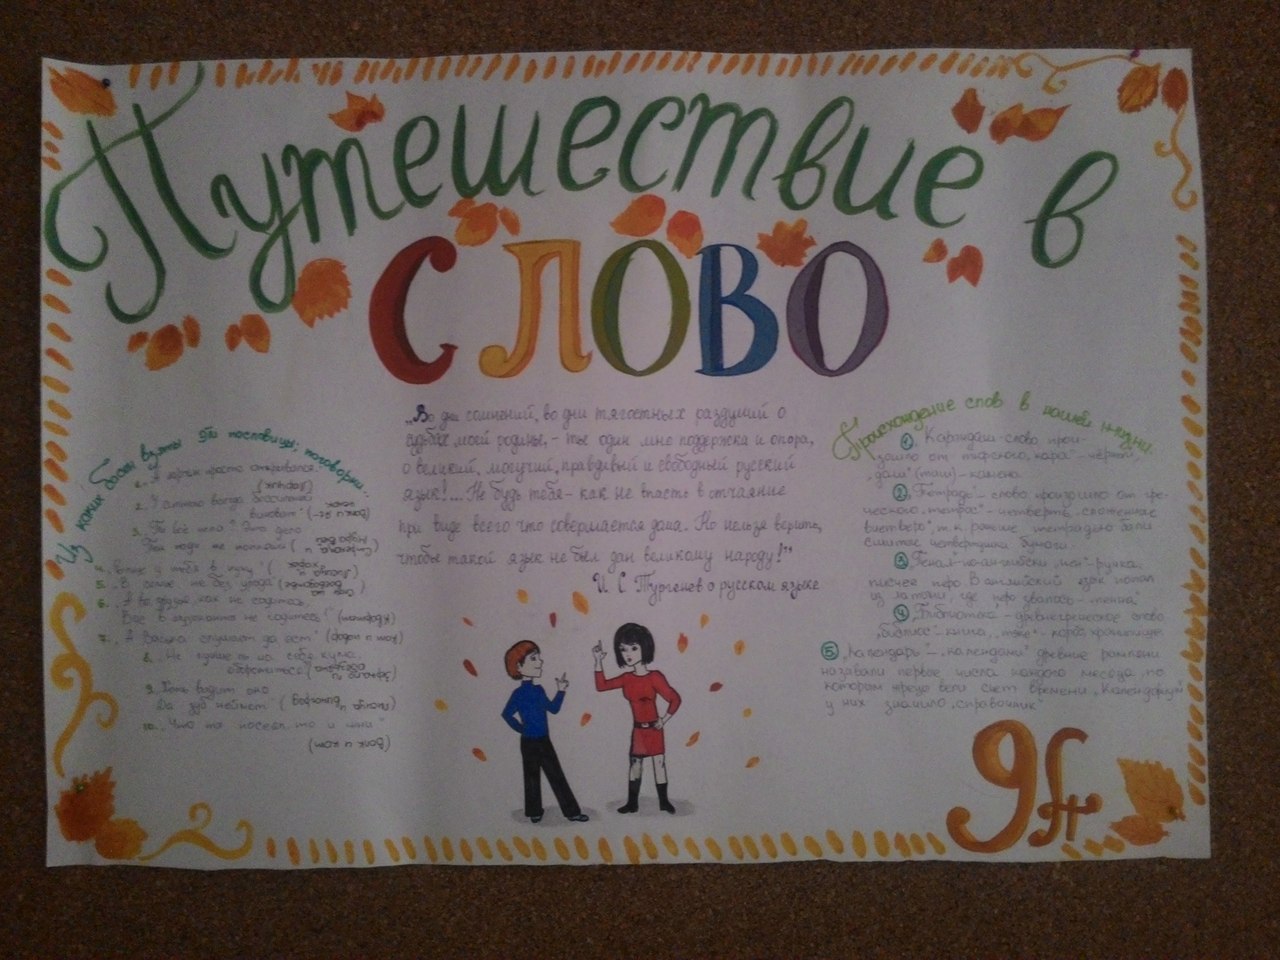 Путешествие в
СЛОВО
Из каких басен взяты эти пословицы, поговорки..
1. „А ларчик просто открывался."
(Ларчик)
2. „У сильного всегда бессильный
виноват"
3. Ты всё пела? Это дело
4. „Рыльце у тебя в пуху" (
5. „В семье не без урода"
6. „А вы друзья, как не садитесь,
Всё в музыканты не годитесь!" (Квартет)
7. „А Васька слушает да ест" (Кот и повар)
8. „Не лучше ль на себя, кума,
оборотиться"
9. Хоть видит око
Да зуб неймёт (Лисица и виноград)
10. „Что ты посеял, то и жни"
(Волк и кот)
„Во дни сомнений, во дни тягостных раздумий о
судьбах моей родины, - ты один мне поддержка и опора,
о великий, могучий, правдивый и свободный русский
язык!... Не будь тебя - как не впасть в отчаяние
при виде всего что совершается дома. Но нельзя верить,
чтобы такой язык не был дан великому народу!"
И. С. Тургенев о русском языке
Происхождение слов в нашей жизни.
1. Карандаш - слово прои-
зошло от тюрского „кара" - чёрный
„даш" (таш) - камень.
2. „Тетрадь" - слово произошло от гре-
ческого „тетрас" - четверть, сложенная
вчетверо", т.к. раньше тетрадью были
сшитые четвертушки бумаги.
3. Пенал - по-английски „пен" - ручка,
писчее перо. В английский язык попал
из латыни, где перо звалось - „пенна"
4. „Библиотека - древнегреческое слово
„библиос" - книга, „теке" - короб, хранилище.
5. „Календарь" - „календами" древние римляне
называли первые числа каждого месяца, по
которым греко вели счет времени „Календариум"
у них значило „справочник"
9А